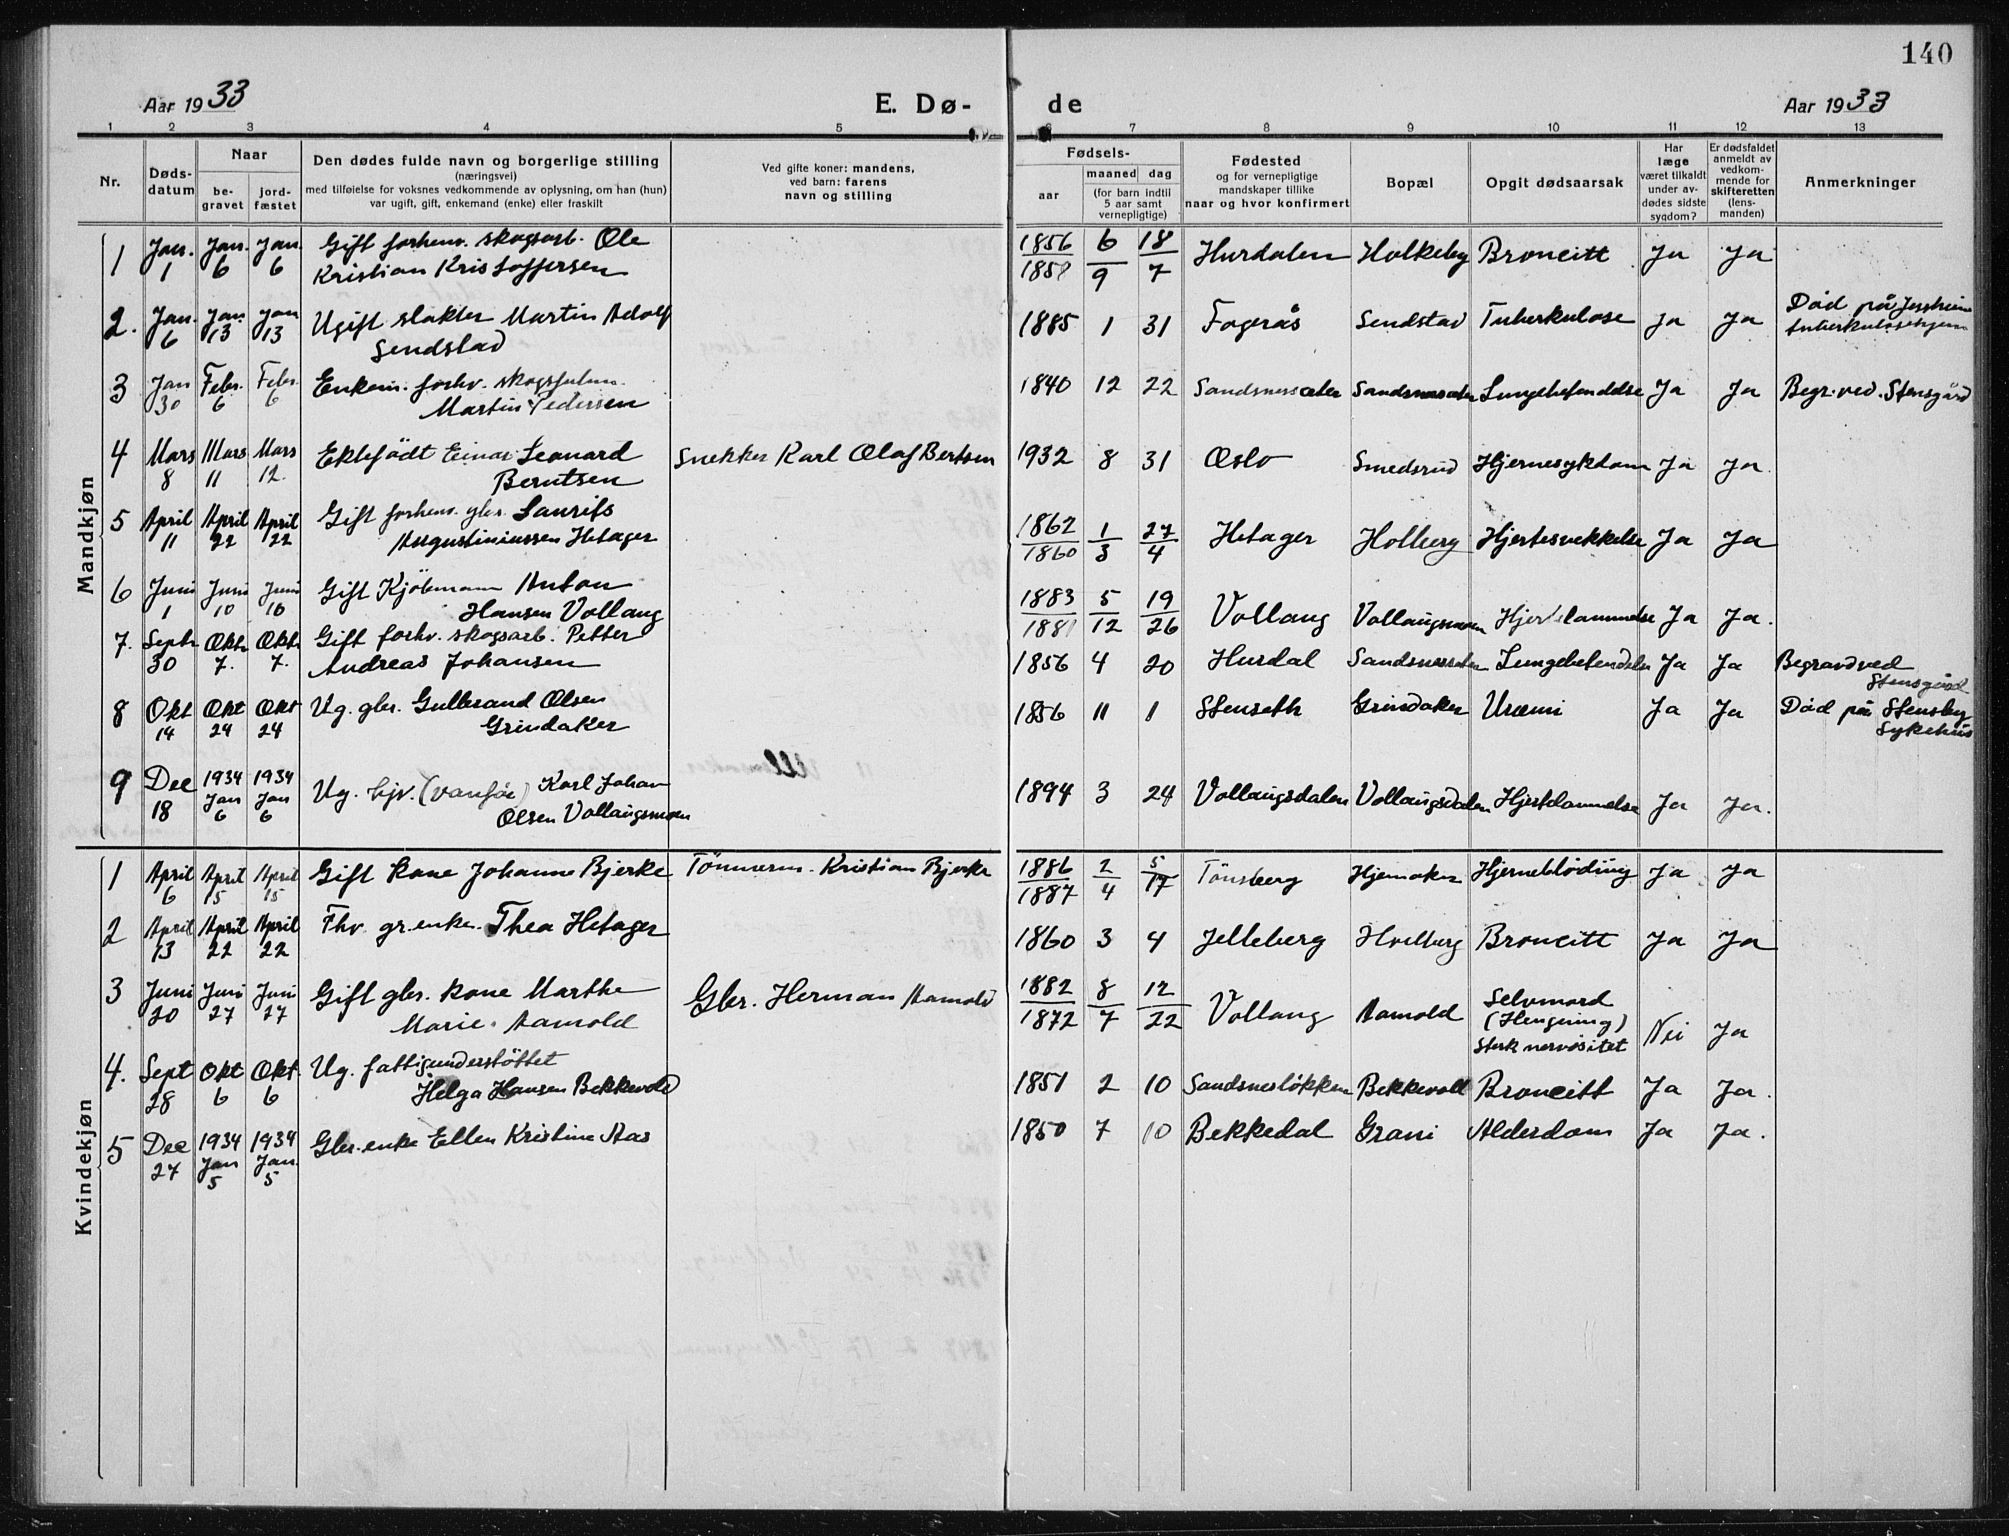 140
Aar 1933 E. Dø- de Aar 1933
1 2 3 4 5 6 7 8 9 10 11 12 13
Nr.
Døds-
datum
Naar
be-
gravet
jord-
fæstet
Den dødes fulde navn og borgerlige stilling
(næringsvei)
med tilføielse for voksnes vedkommende av oplysning, om han (hun)
var ugift, gift, enkemand (enke) eller fraskilt
Ved gifte koner: mandens,
ved barn: farens
navn og stilling
Fødsels-
aar
maaned dag
(for barn indtil
5 aar samt
vernepligtige)
Fødested
og for vernepligtige
mandskaper tillike
naar og hvor konfirmert
Bopæl
Opgit dødsaarsak
Har
læge
været tilkaldt
under av-
dødes sidste
sygdom?
Er dødsfaldet
anmeldt av
vedkom-
mende for
skifteretten
(lens-
manden)
Anmerkninger
Mandkjøn
1 Jan. 1 Jan. 6 Jan. 6 Gift forhenv. skogsarb. Ole
Kristian Kristoffersen
1856 6 18
1858 9 7
Hurdalen Holkeby Broncitt Ja Ja
2. Jan. 6 Jan 13 Jan 13 Ugift slakter Martin Adolf
Sendstad
1885 1 31 Fagerås Sendstad Tuberkulose Ja Ja Død på Jessheim
tuberkulosehjem
3 Jan 30 Febr. 6 Febr. 6 Enkem. forhv.
Martin Pedersen
1840 12 22 Sandsnessæter Sandsnessæter Lungebetendelse Ja Ja Begr. ved. Stensgård
4 Mars 8 Mars 11 Mars 12. Ektefödt Einar Leonard
Berntsen
Snekker Karl Olaf Bertsen
1932 8 31 Oslo Smedsrud Hjernesykdom Ja Ja
5 April 11 April 22 April 22 Gift forhenv. gbr. Laurits
Augustiniussen Hetager
1862 1 27
1860 3 4
Hetager Holberg Hjertesvekkelse Ja Ja
6 Juni 1 Juni 10 Juni 10 Gift Kjöbmann Anton
Hansen Vollaug
1883 5 19
1881 12 26
Vollaug Vollaugsmoen Hjertelammelse Ja Ja.
7. Septr 30 Oktr 7. Oktr 7. Gift forhv. skogsarb. Petter
Andreas Johansen
1856 4 20 Hurdal Sandsnessæter Lungebetendelse Ja Ja Begravd ved
Stensgård
8 Okt 14 Okt 24 Okt 24 Ug. gbr. Gulbrand Olsen
Grindaker
1856 11 1 Stenseth Grindaker Uræmi Ja Ja Död på Stensby
Sykehus
9 Dec 18 1934 Jan 6 1934 Jan 6 Ug. hjv. (vanför) Karl Johan
Olsen Vollaugsmoen
1894 3 24 Vollaugsdalen Vollaugsdalen Hjertelammelse Ja Ja.
Kvindekjøn
1 April 6 April 15 April 15 Gift kone Johanne Bjerke Tömmerm. Kristian Bjerke
1886 2 5
1887 4 17
Tönsberg Hjemaker Hjerneblödning Ja Ja
2 April 13 April 22 April 22 Fhv gr.enke. Thea Hetager
1860 3 4 Jelleberg Holberg Broncitt Ja Ja
3 Juni 20 Juni 27 Juni 27 Gift gbr. kone Marthe
Marie Aamold
Gbr. Herman Aamold
1882 8 12
1872 7 22
Vollaug Aamold Selvmord
(Hengning)
Sterk nervøsitet
Nei Ja
4. Sept 28 Okt 6 Okt. 6 Ug. fattigunderstöttet
Helga Hansen Bekkevold
1851 2 10 Sandsneslökken Bekkevold Broncitt Ja Ja.
5 Dec 27 1934 Jan 5 1934 Jan. 5 Gbr. enke Ellen Kristine Aas
1850 7 10 Bekkedal Grani Alderdom Ja Ja.